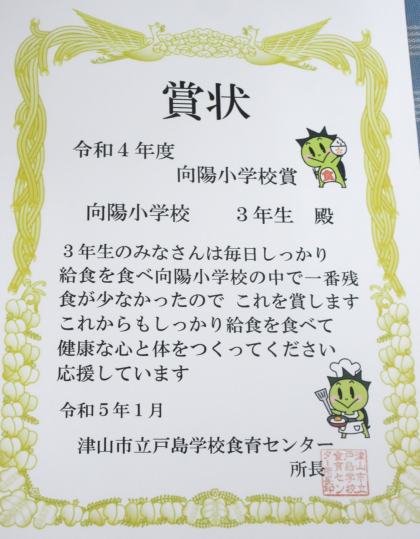 賞状
令和4年度
向陽小学校賞
向陽小学校　3年生　殿
3年生のみなさんは毎日しっかり
給食を食べ向陽小学校の中で一番残
食が少なかったので これを賞します
これからもしっかり給食を食べて
健康な心と体をつくってください
応援しています
令和5年1月
津山市立戸島学校食育センター
所長
食